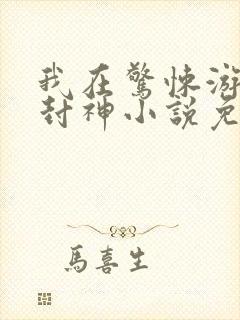 我在驚悚游
封神小說免
馬喜生